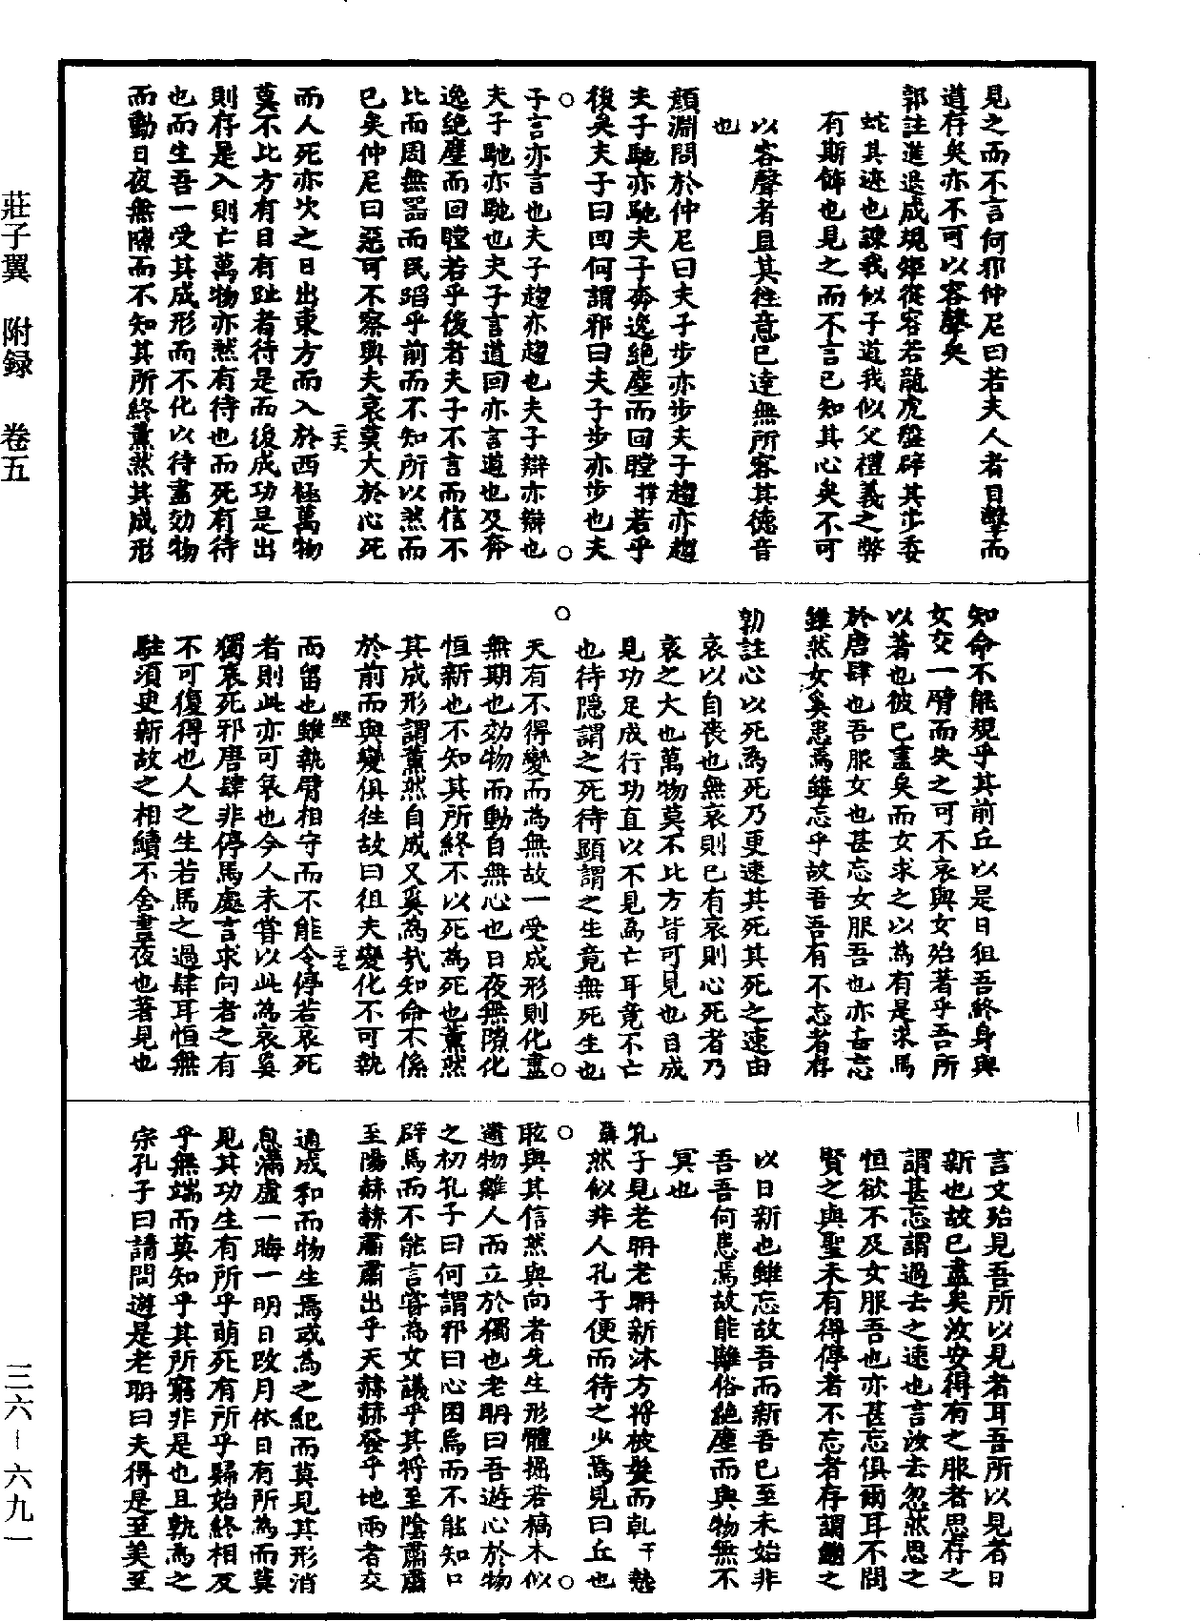 見之而不言何邪仲尼曰若夫人者目擊而
道存矣亦不可以容聲矣
郭註進退成規矩從容若龍虎盤辟其步委
蛇其迹也諫我似子道我似父禮義之弊
有斯飾也見之而不言已知其心矣不可
以容聲者且其往意已達無所容其德音
也
顏淵問於仲尼曰夫子步亦步夫子趨亦趨
夫子馳亦馳夫子奔逸絕塵而回瞠撑若乎
後矣夫子曰回何謂邪曰夫子步亦步也夫
子言亦言也夫子趨亦趨也夫子辯亦辯也
夫子馳亦馳也夫子言道回亦言道也及奔
逸絕塵而回瞠若乎後者夫子不言而信不
比而周無器而民蹈乎前而不知所以然而
已矣仲尼曰惡可不察與夫哀莫大於心死
二六
而人死亦次之日出東方而入於西極萬物
莫不比方有目有趾者待是而後成功是出
則存是入則亡萬物亦然有待也而死有待
也而生吾一受其成形而不化以待盡効物
而動日夜無隙而不知其所終薰然其成形
知命不能規乎其前丘以是日徂吾終身與
女交一臂而失之可不哀與女殆著乎吾所
以著也彼已盡矣而女求之以為有是求馬
於唐肆也吾服女也甚忘女服吾也亦甚忘
雖然女奚患焉雖忘乎故吾吾有不忘者存
郭註心以死為死乃更速其死其死之速由
哀以自喪也無哀則已有哀則心死者乃
哀之大也萬物莫不比方皆可見也目成
見功足成行功直以不見為亡耳竟不亡
也待隱謂之死待顯謂之生竟無死生也
天有不得變而為無故一受成形則化盡
無期也効物而動自無心也日夜無隙化
恒新也不知其所終不以死為死也薰然
其成形謂薰然自成又奚為哉知命不係
於前而與變俱往故曰徂夫變化不可執
二七
而留也雖執臂相守而不能令停若哀死
者則此亦可哀也今人未嘗以此為哀奚
獨哀死邪唐肆非停馬處言求向者之有
不可復得也人之生若馬之過肆耳恒無
駐須臾新故之相續不舍晝夜也著見也
言文殆見吾所以見者耳吾所以見者日
新也故已盡矣汝安得有之服者思存之
謂甚忘謂過去之速也言汝去忽然思之
恒欲不及女服吾也亦甚忘俱爾耳不問
賢之與聖未有得停者不忘者存謂繼之
以日新也雖忘故吾而新吾已至未始非
吾吾何患焉故能離俗絕塵而與物無不
冥也
孔子見老聃老聃新沐方將被髮而乾干慹
然似非人孔子便而待之少焉見曰丘也
眩與其信然與向者先生形體掘若槁木似
遺物離人而立於獨也老聃曰吾遊心於物
之初孔子曰何謂邪曰心困焉而不能知口
辟焉而不能言嘗為女議乎其將至陰肅肅
至陽赫赫肅肅出乎天赫赫發乎地兩者交
通成和而物生焉或為之紀而莫見其形消
息滿虛一晦一明日改月依日有所為而莫
見其功生有所乎萌死有所乎歸始終相反
乎無端而莫知乎其所窮非是也且孰為之
宗孔子曰請問遊是老聃曰夫得是至美至
莊子翼　附録　卷五
三六－六九一